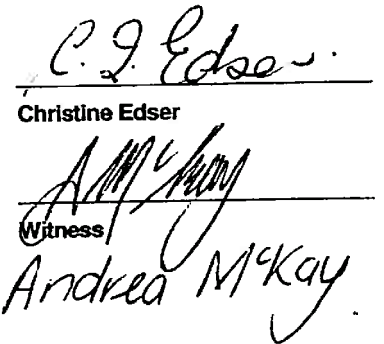 C. J. Edser.
Christine Edser
A McKay
Witness
Andrea McKay.